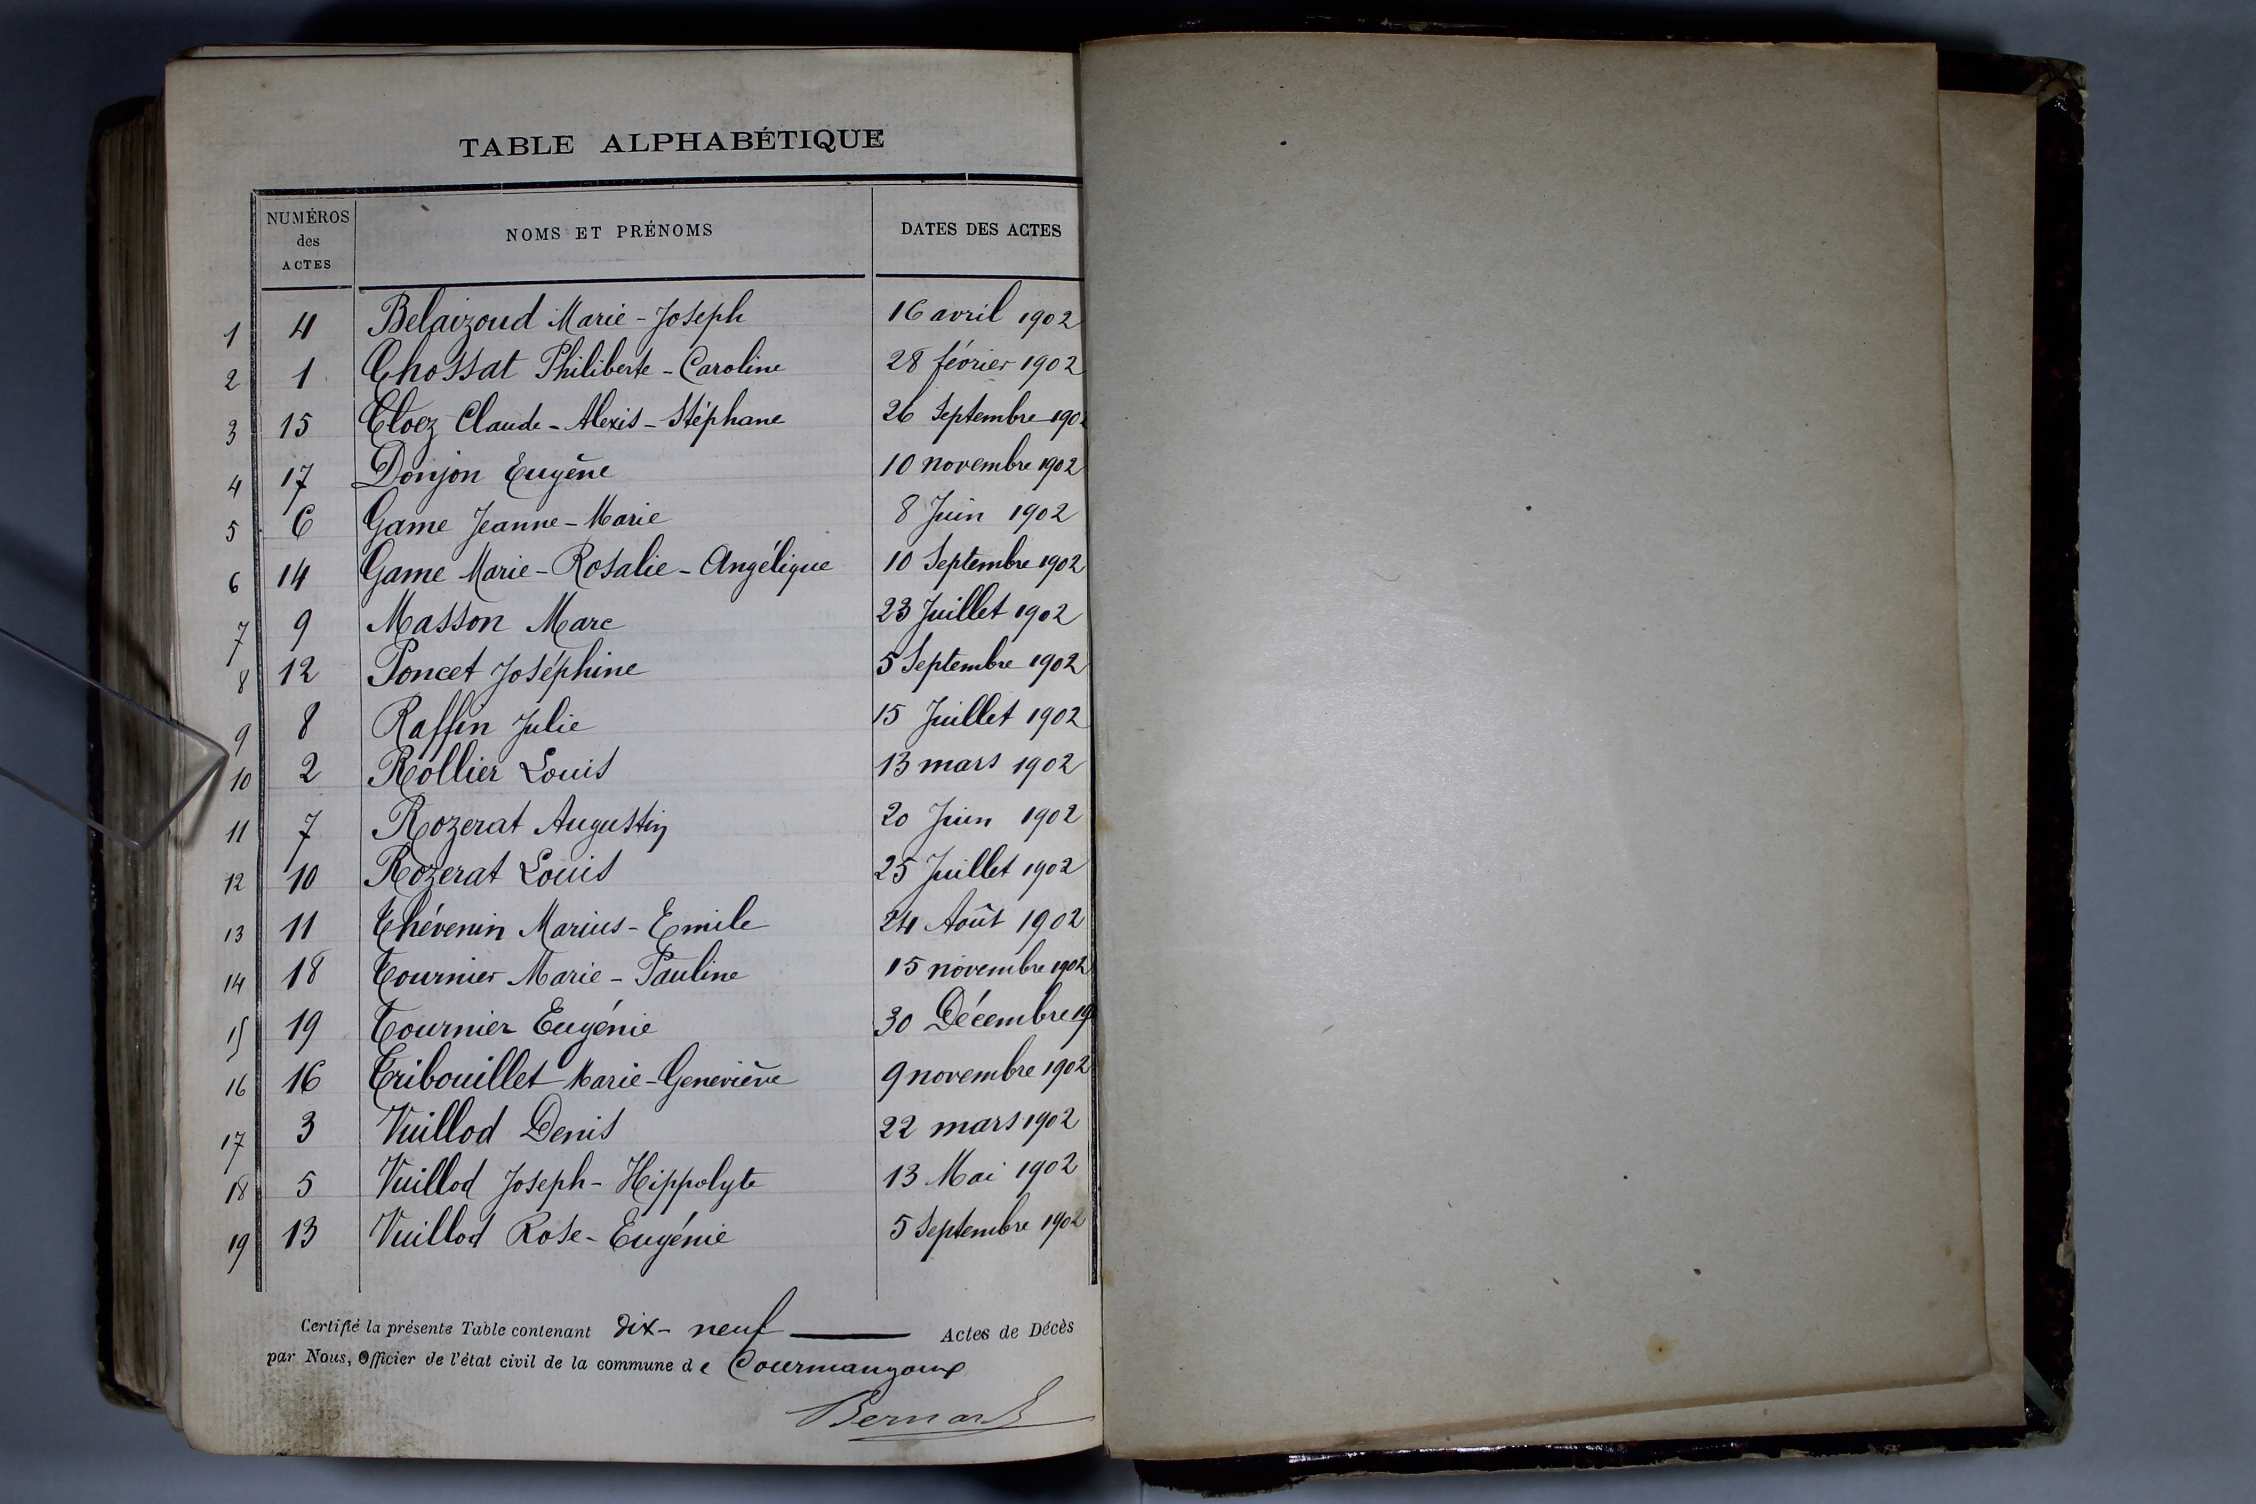 TABLE ALPHABÉTIQUE
NUMÉROS des ACTES NOMS ET PRÉNOMS DATES DES ACTES
1 4 Belaizoud Marie-Joseph 16 avril 1902
2 1 Chossat Philiberte-Caroline 28 février 1902
3 15 Cloez Claude-Alexis-Stéphane 26 Septembre 190
4 17 Donjon Eugène 10 novembre 1902
5 6 Game Jeanne-Marie 8 Juin 1902
6 14 Game Marie-Rosalie-Angélique 10 Septembre 1902
7 9 Masson Marc 23 Juillet 1902
8 12 Poncet Joséphine 5 Septembre 1902
9 8 Raffin Julie 15 Juillet 1902
10 2 Rollier Louis 13 mars 1902
11 7 Rozerat Augustin 20 Juin 1902
12 10 Rozerat Louis 25 Juillet 1902
13 11 Thévenin Marius-Emile 24 Août 1902
14 18 Tournier Marie-Pauline 15 novembre 1902
15 19 Tournier Eugénie 30 Décembre 19
16 16 Tribouillet Marie-Geneviève 9 novembre 1902
17 3 Vuillod Denis 22 mars 1902
18 5 Vuillod Joseph-Hippolyte 13 Mai 1902
19 13 Vuillod Rose-Eugénie 5 Septembre 1902
Certifié la présente Table contenant dix-neuf Actes de Décès
par Nous, Officier de l'état civil de la commune de Courmangoux
Bernard